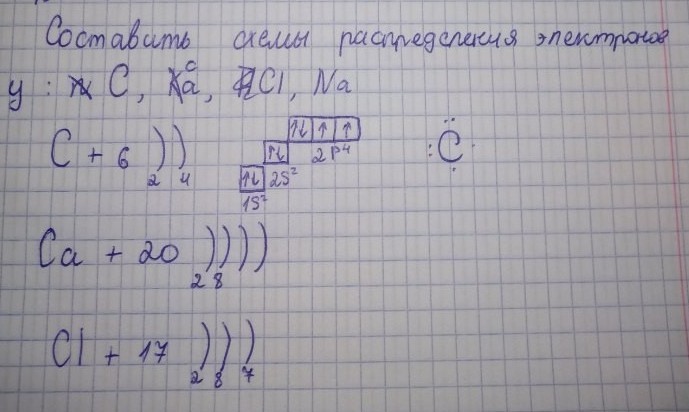 Составить схемы распределения электронов
у : C, Ca, Cl, Na
C + 6 ) ) ↑↓ ↑ ↑
2 4 ↑↓ 2p⁴ :C̈·
↑↓ 2S²
1S²
Ca + 20 ) ) ) )
2 8
Cl + 17 ) ) )
2 8 7